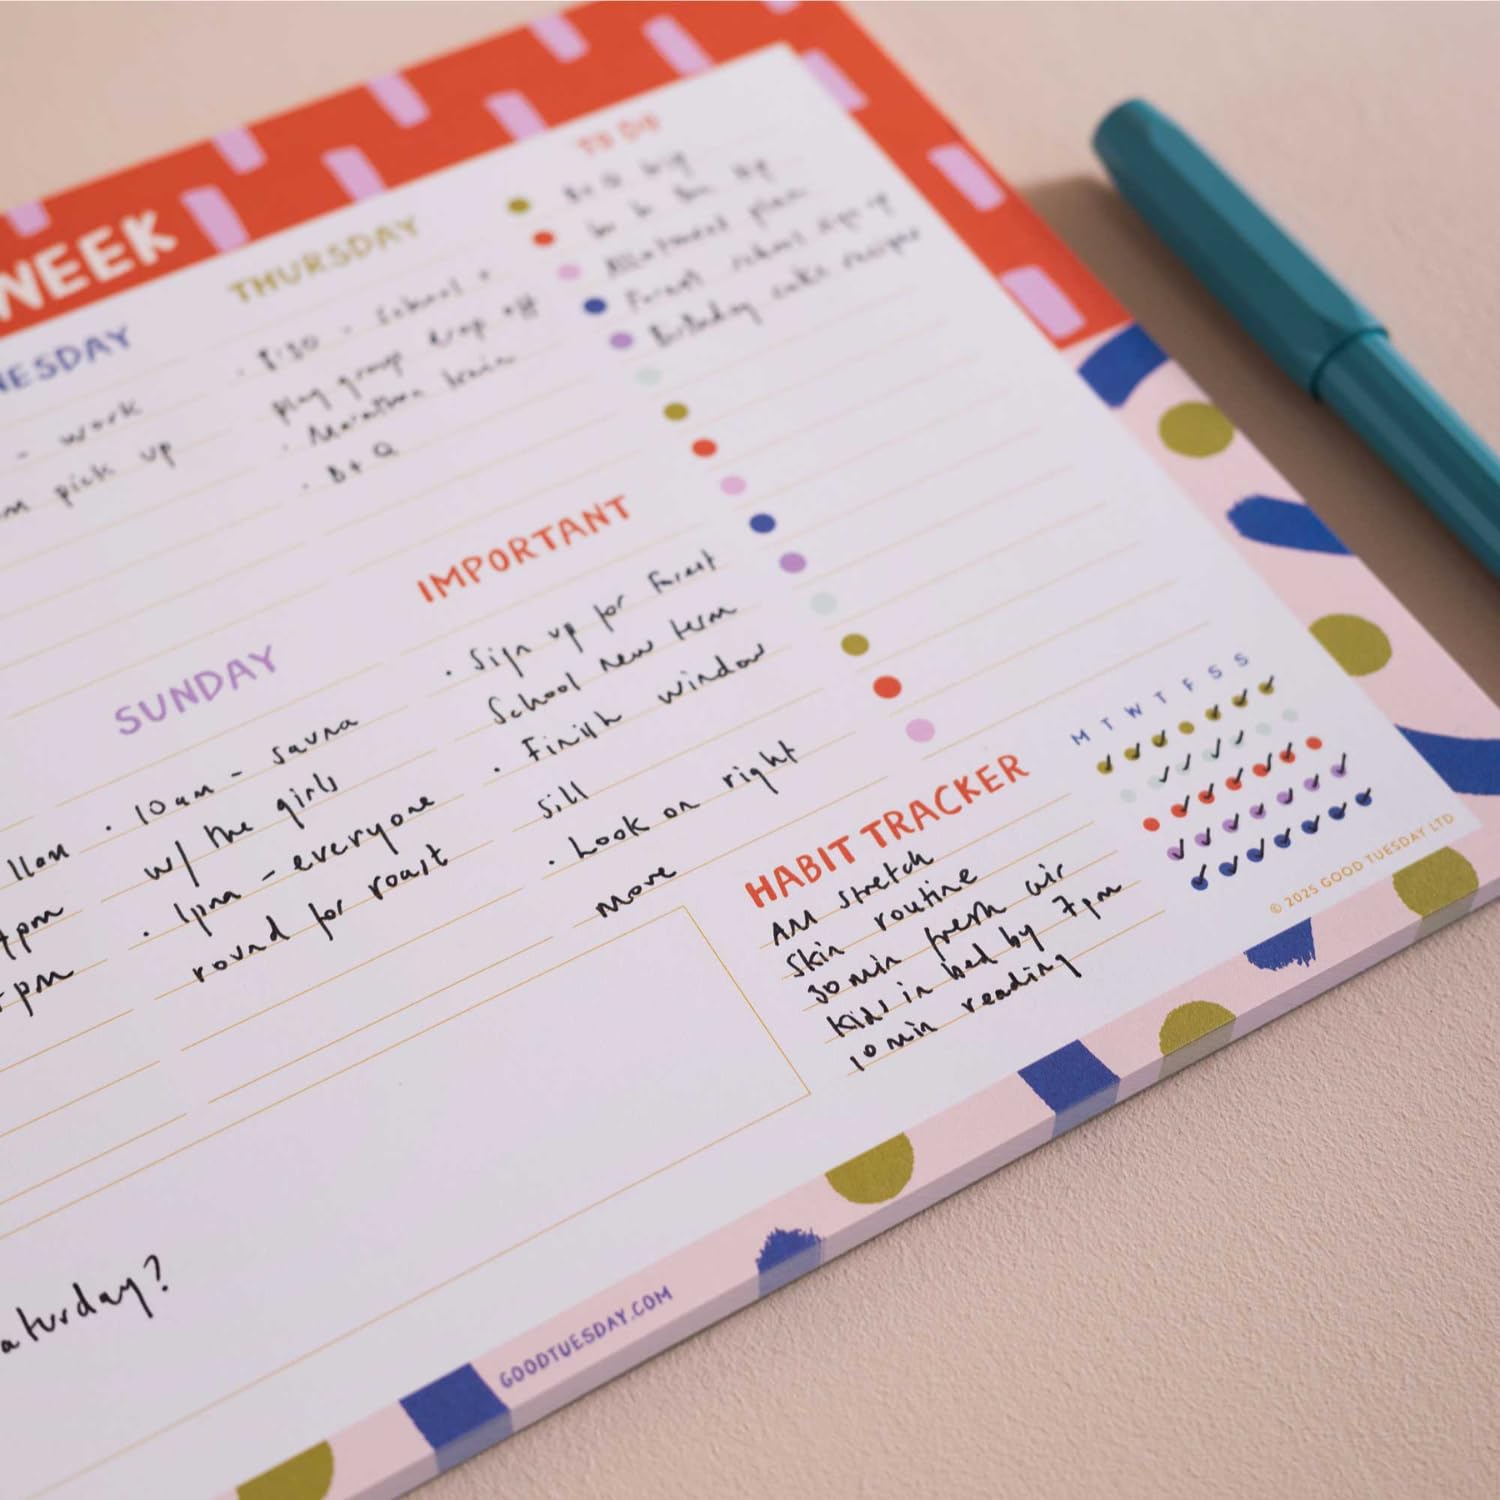 WEEK
NESDAY
- work
pick up
THURSDAY
· 8:30 - School +
play group drop off
· Marathon train
· B+Q
TO DO
Allotment plan
Forest school sign up
Birthday cake recipes
SUNDAY
11am
7pm
pm
· 10am - sauna
w/ the girls
· 1pm - everyone
round for roast
IMPORTANT
· Sign up for Forest
School new term
· Finish window
sill
· Look on right
move
HABIT TRACKER
M T W T F S S
AM stretch
Skin routine
30 min fresh air
Kids in bed by 7pm
10 min reading
© 2025 GOOD TUESDAY LTD
aturday?
GOODTUESDAY.COM